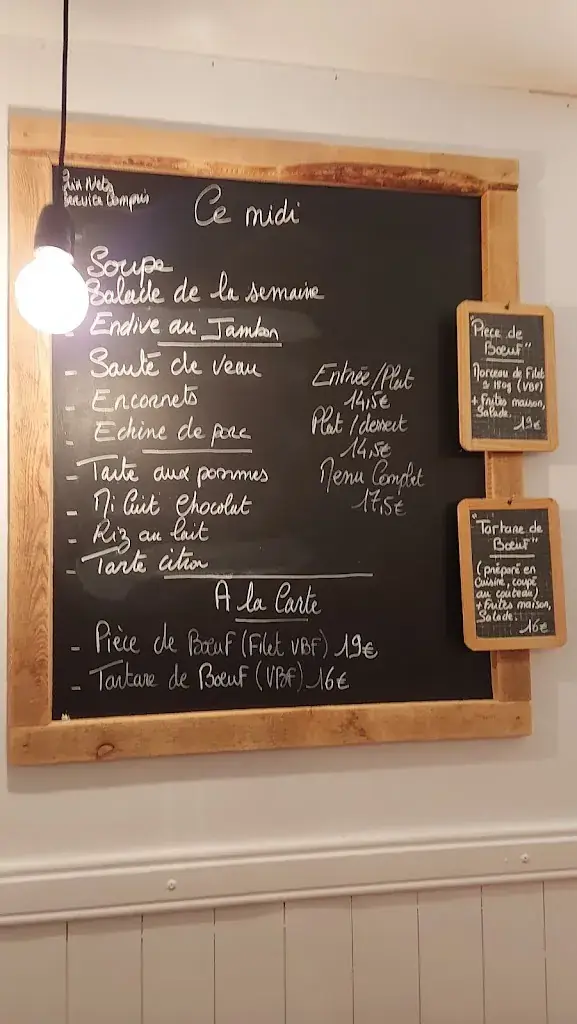 Prix Nets
Service Compris
Ce midi
Soupe
Salade de la semaine
- Endive au Jambon
- Sauté de veau
- Encornets
- Echine de porc
- Tarte aux pommes
- Mi Cuit Chocolat
- Riz au lait
- Tarte citron
Entrée/Plat
14,5€
Plat/dessert
14,5€
Menu Complet
17,5€
A la Carte
- Pièce de Boeuf (Filet VBF) 19€
- Tartare de Boeuf (VBF) 16€
"Pièce de
Boeuf"
Morceau de Filet
± 180g (VBF)
+ Frites maison,
Salade.
19€
"Tartare de
Boeuf"
(préparé en
Cuisine, coupé
au couteau)
+ Frites maison,
Salade.
16€